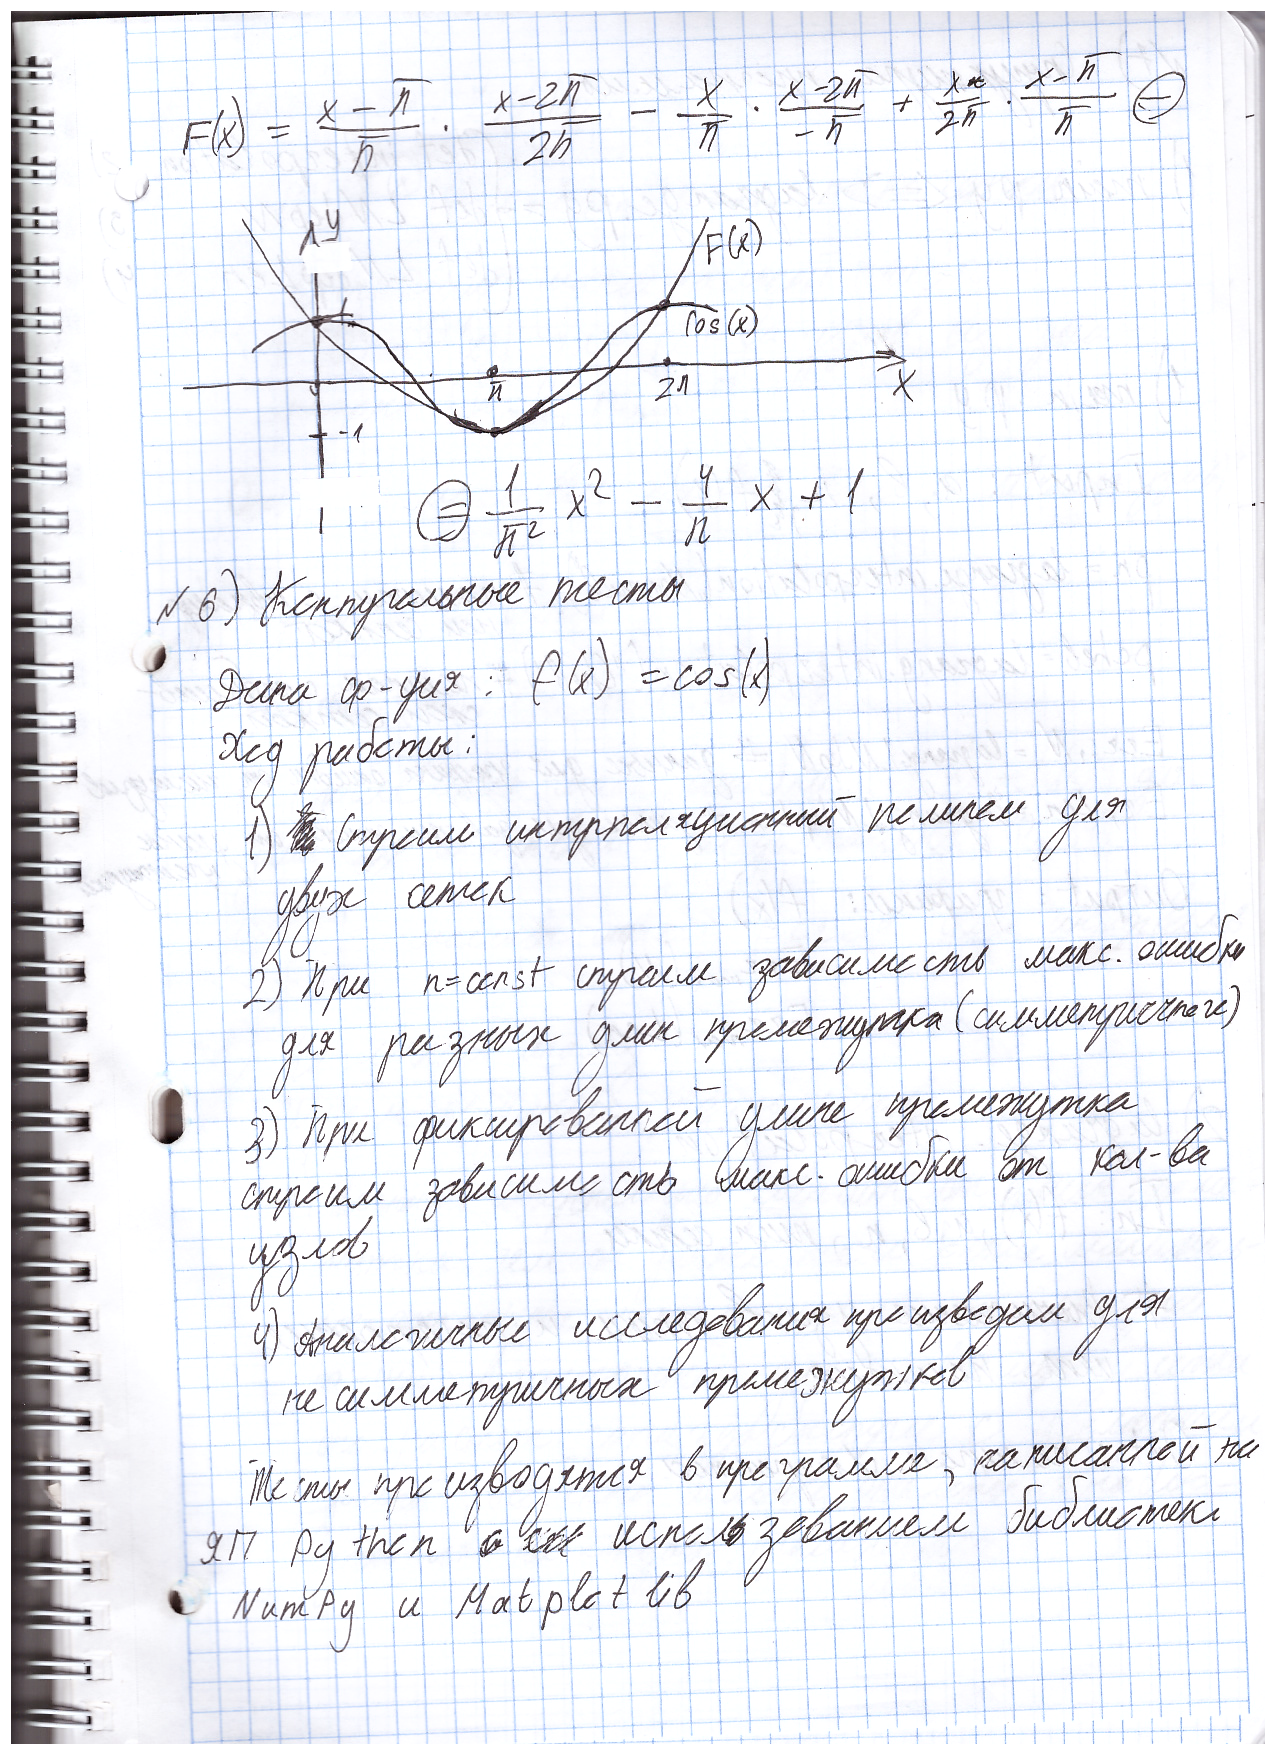 F(x) = (x-π)/π · (x-2π)/2π - x/π · (x-2π)/-π + x/2π · (x-π)/π ⊜
y
1
F(x)
cos(x)
π
2π
x
-1
⊜ 1/π² x² - 4/π x + 1
№6) Контрольные тесты
Дана ф-ция: f(x) = cos(x)
Ход работы:
1) Строим интрполяционный полином для
двух сеток
2) При n=const строим зависимость макс. ошибки
для разных длин промежутка (симметричного)
3) При фиксированной длине промежутка
строим зависимость макс. ошибки от кол-ва
узлов
4) Аналогичные исследования производим для
не симметричных промежутков
Тесты производятся в программе, написанной на
ЯП Python с использованием библиотек
NumPy и Matplotlib